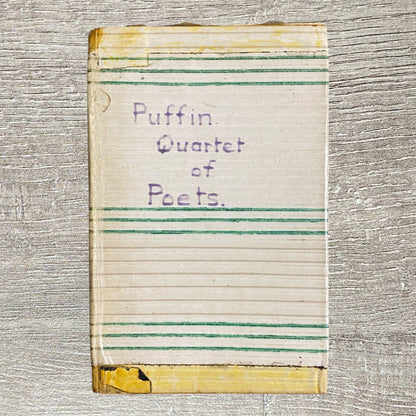 Puffin
Quartet
of
Poets.